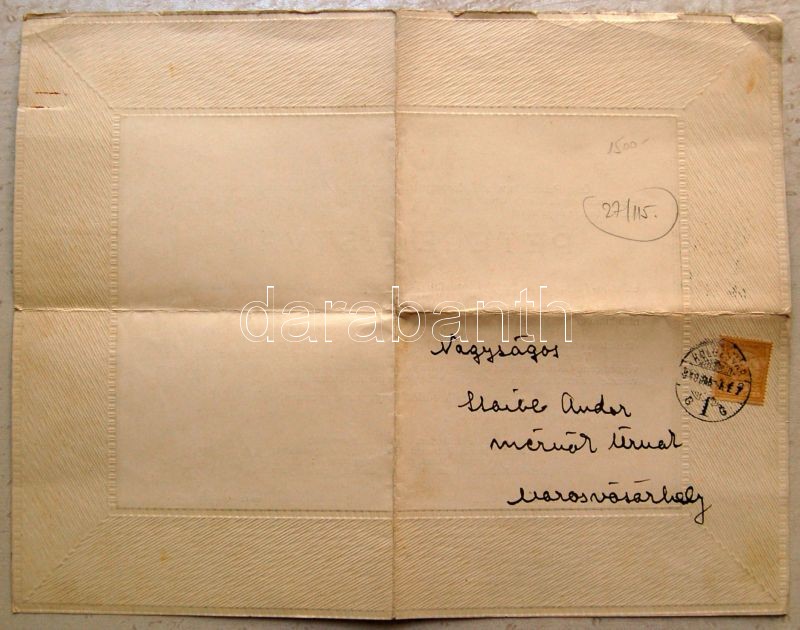 1500-
27/115.
darabanth
Nagyságos
Staibl Andor
mérnök Úrnak
Marosvásárhely